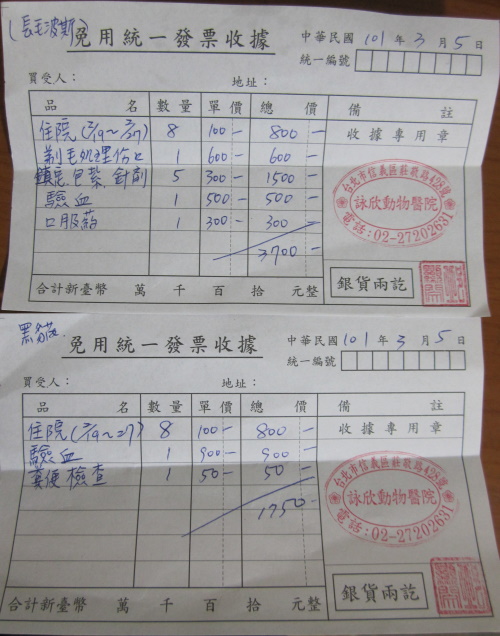 (長毛波斯)
免用統一發票收據
中華民國 101 年 3 月 5 日
統一編號
買受人： 地址：
品 名 數量 單價 總價 備 註
住院(2/19～2/27) 8 100- 800-
收據專用章
剃毛処理伤口 1 600- 600-
鎮定包紮,針劑 5 300- 1500-
驗血 1 500- 500-
口服葯 1 300- 300-
3700-
台北市信義區莊敬路428號
詠欣動物醫院
電話:02-27202631
銀貨兩訖
合計新臺幣 萬 千 百 拾 元整
黑貓
免用統一發票收據
中華民國 101 年 3 月 5 日
統一編號
買受人： 地址：
品 名 數量 單價 總價 備 註
住院(2/19～27) 8 100- 800-
收據專用章
驗血 1 900- 900-
糞便檢查 1 50- 50-
1750-
台北市信義區莊敬路428號
詠欣動物醫院
電話:02-27202631
銀貨兩訖
合計新臺幣 萬 千 百 拾 元整